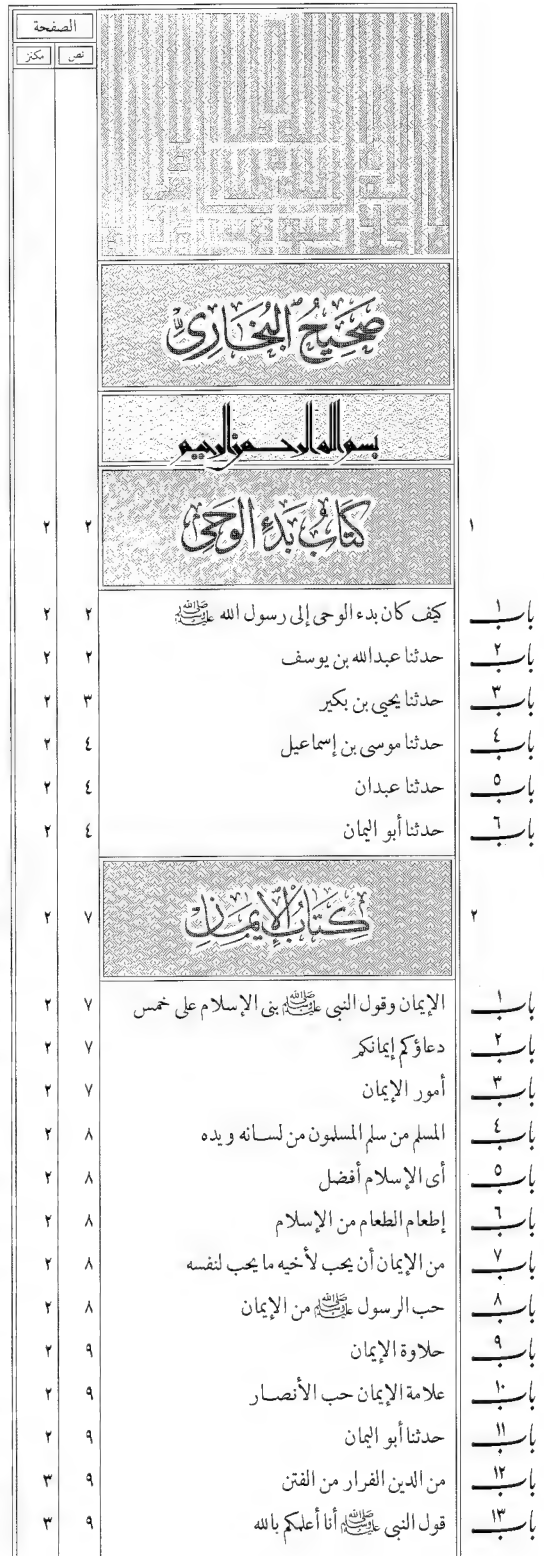 الصفحة
نص مكنز
صَحِيحُ البُخَارِيِّ
بسم الله الرحمن الرحيم
١ كِتَابُ بَدْءِ الوَحْىِ ٢ ٢
باب ١ كيف كان بدء الوحى إلى رسول الله ﷺ ٢ ٢
باب ٢ حدثنا عبدالله بن يوسف ٢ ٢
باب ٣ حدثنا يحيى بن بكير ٣ ٢
باب ٤ حدثنا موسى بن إسماعيل ٤ ٢
باب ٥ حدثنا عبدان ٤ ٢
باب ٦ حدثنا أبو اليمان ٤ ٢
٢ كِتَابُ الإِيمَانِ ٧ ٢
باب ١ الإيمان وقول النبى ﷺ بنى الإسلام على خمس ٧ ٢
باب ٢ دعاؤكم إيمانكم ٧ ٢
باب ٣ أمور الإيمان ٧ ٢
باب ٤ المسلم من سلم المسلمون من لسانه ويده ٨ ٢
باب ٥ أى الإسلام أفضل ٨ ٢
باب ٦ إطعام الطعام من الإسلام ٨ ٢
باب ٧ من الإيمان أن يحب لأخيه ما يحب لنفسه ٨ ٢
باب ٨ حب الرسول ﷺ من الإيمان ٨ ٢
باب ٩ حلاوة الإيمان ٩ ٢
باب ١٠ علامة الإيمان حب الأنصار ٩ ٢
باب ١١ حدثنا أبو اليمان ٩ ٢
باب ١٢ من الدين الفرار من الفتن ٩ ٣
باب ١٣ قول النبى ﷺ أنا أعلمكم بالله ٩ ٣